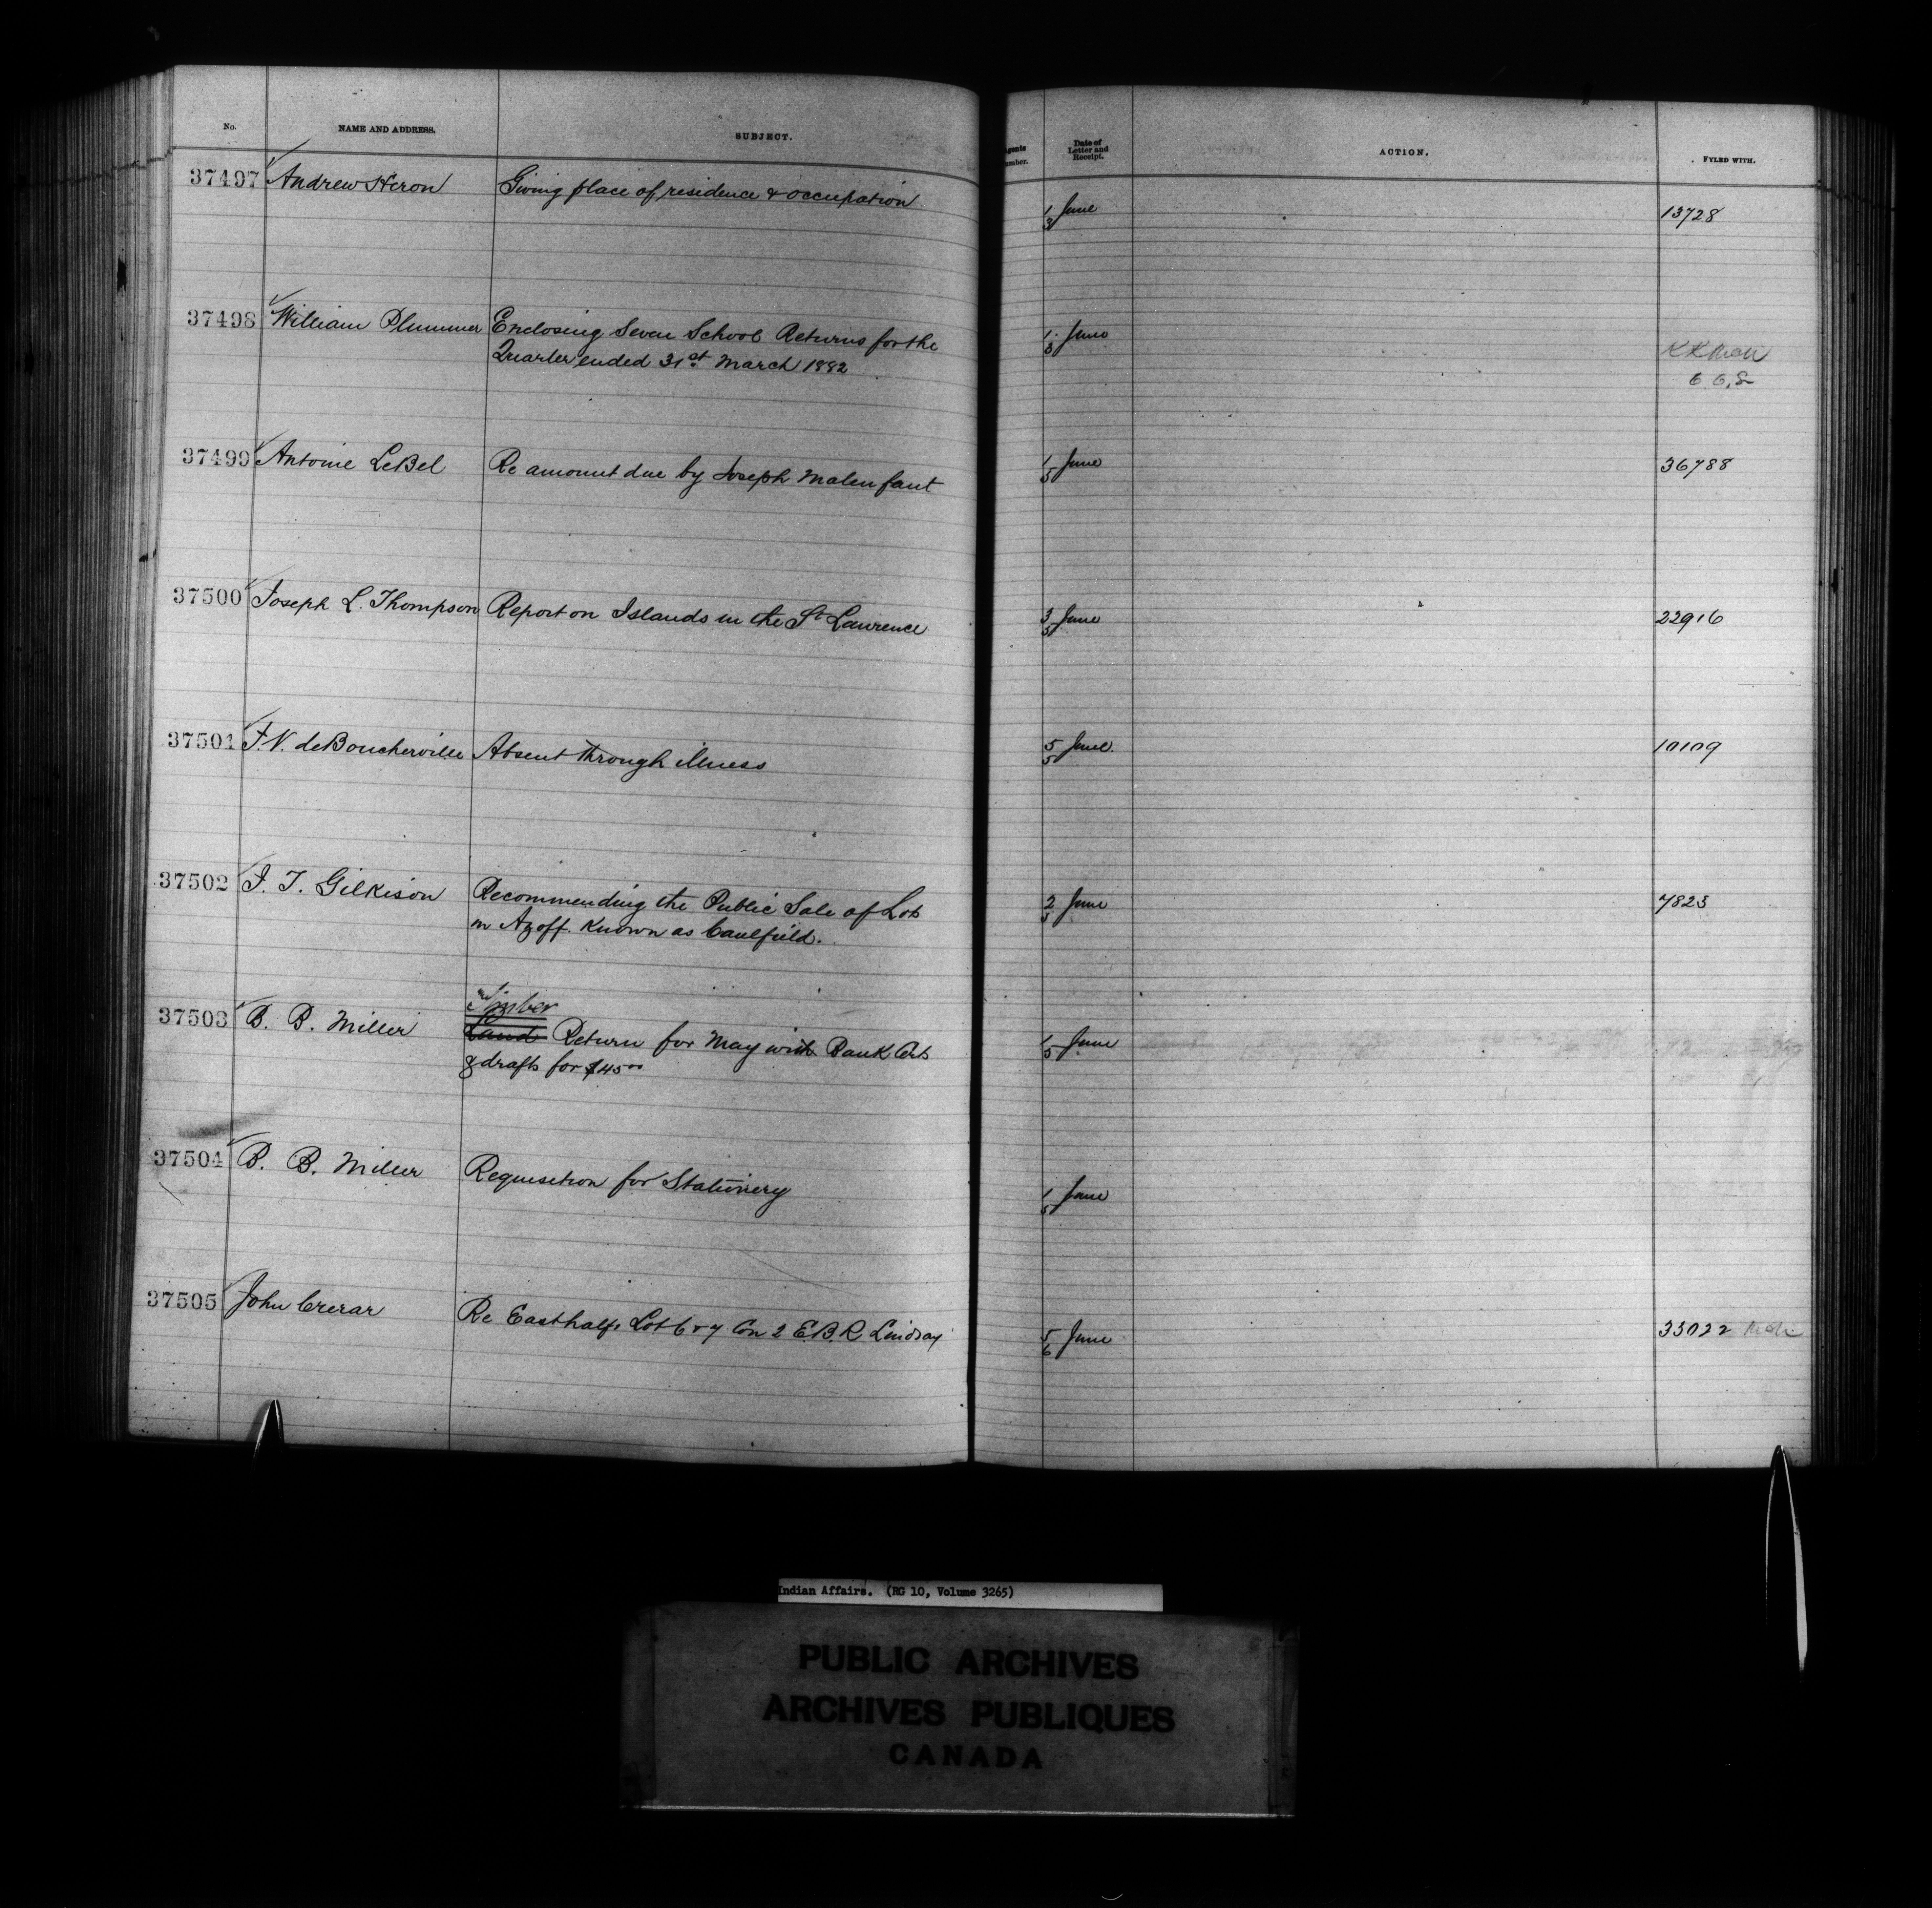 No. NAME AND ADDRESS. SUBJECT. Agents Number. Date of Letter and Receipt. ACTION. FYLED WITH.
37497 Andrew Heron Giving place of residence & occupation 1/3 June 13728
37498 William Plummer Enclosing Seven School Returns for the 1/3 June
Quarter ended 31st March 1882
37499 Antoine LeBel Re amount due by Joseph Malenfant 1/5 June 36788
37500 Joseph L. Thompson Report on Islands in the St Lawrence 3/5 June 22916
37501 F. V. deBoucherville Absent through illness 5/5 June 10109
37502 J. T. Gilkison Recommending the Public Sale of Lots 2/5 June 7823
in Azoff. Known as Caulfield.
Timber
37503 B. B. Miller Land Return for May with Bank Certs 1/5 June
& drafts for $45 00
37504 B. B. Miller Requisition for Stationery 1/5 June
37505 John Crerar Re East half Lot 6 & 7 Con 2 E.B.R. Lindsay 5/6 June 33022
Indian Affairs. (RG 10, Volume 3265)
PUBLIC ARCHIVES
ARCHIVES PUBLIQUES
CANADA